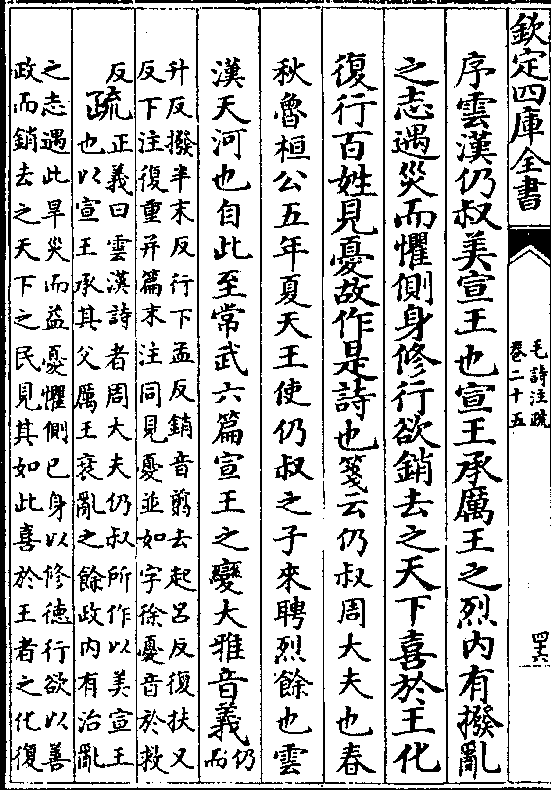 欽定四庫全書
毛詩注疏
卷二十五
四十六
序雲漢仍叔美宣王也宣王承厲王之烈内有撥亂
之志遇災而懼側身修行欲銷去之天下喜於王化
復行百姓見憂故作是詩也箋云仍叔周大夫也春
秋魯桓公五年夏天王使仍叔之子來聘烈餘也雲
漢天河也自此至常武六篇宣王之變大雅音義仍而
升反撥半末反行下孟反銷音霄去起呂反復扶又
反下注復重并篇末注同見憂並如字徐憂音於救
反疏正義曰雲漢詩者周大夫仍叔所作以美宣王
也以宣王承其父厲王衰亂之餘政内有治亂
之志遇此旱災而益憂懼側已身以修德行欲以善
政而銷去之天下之民見其如此喜於王者之化復